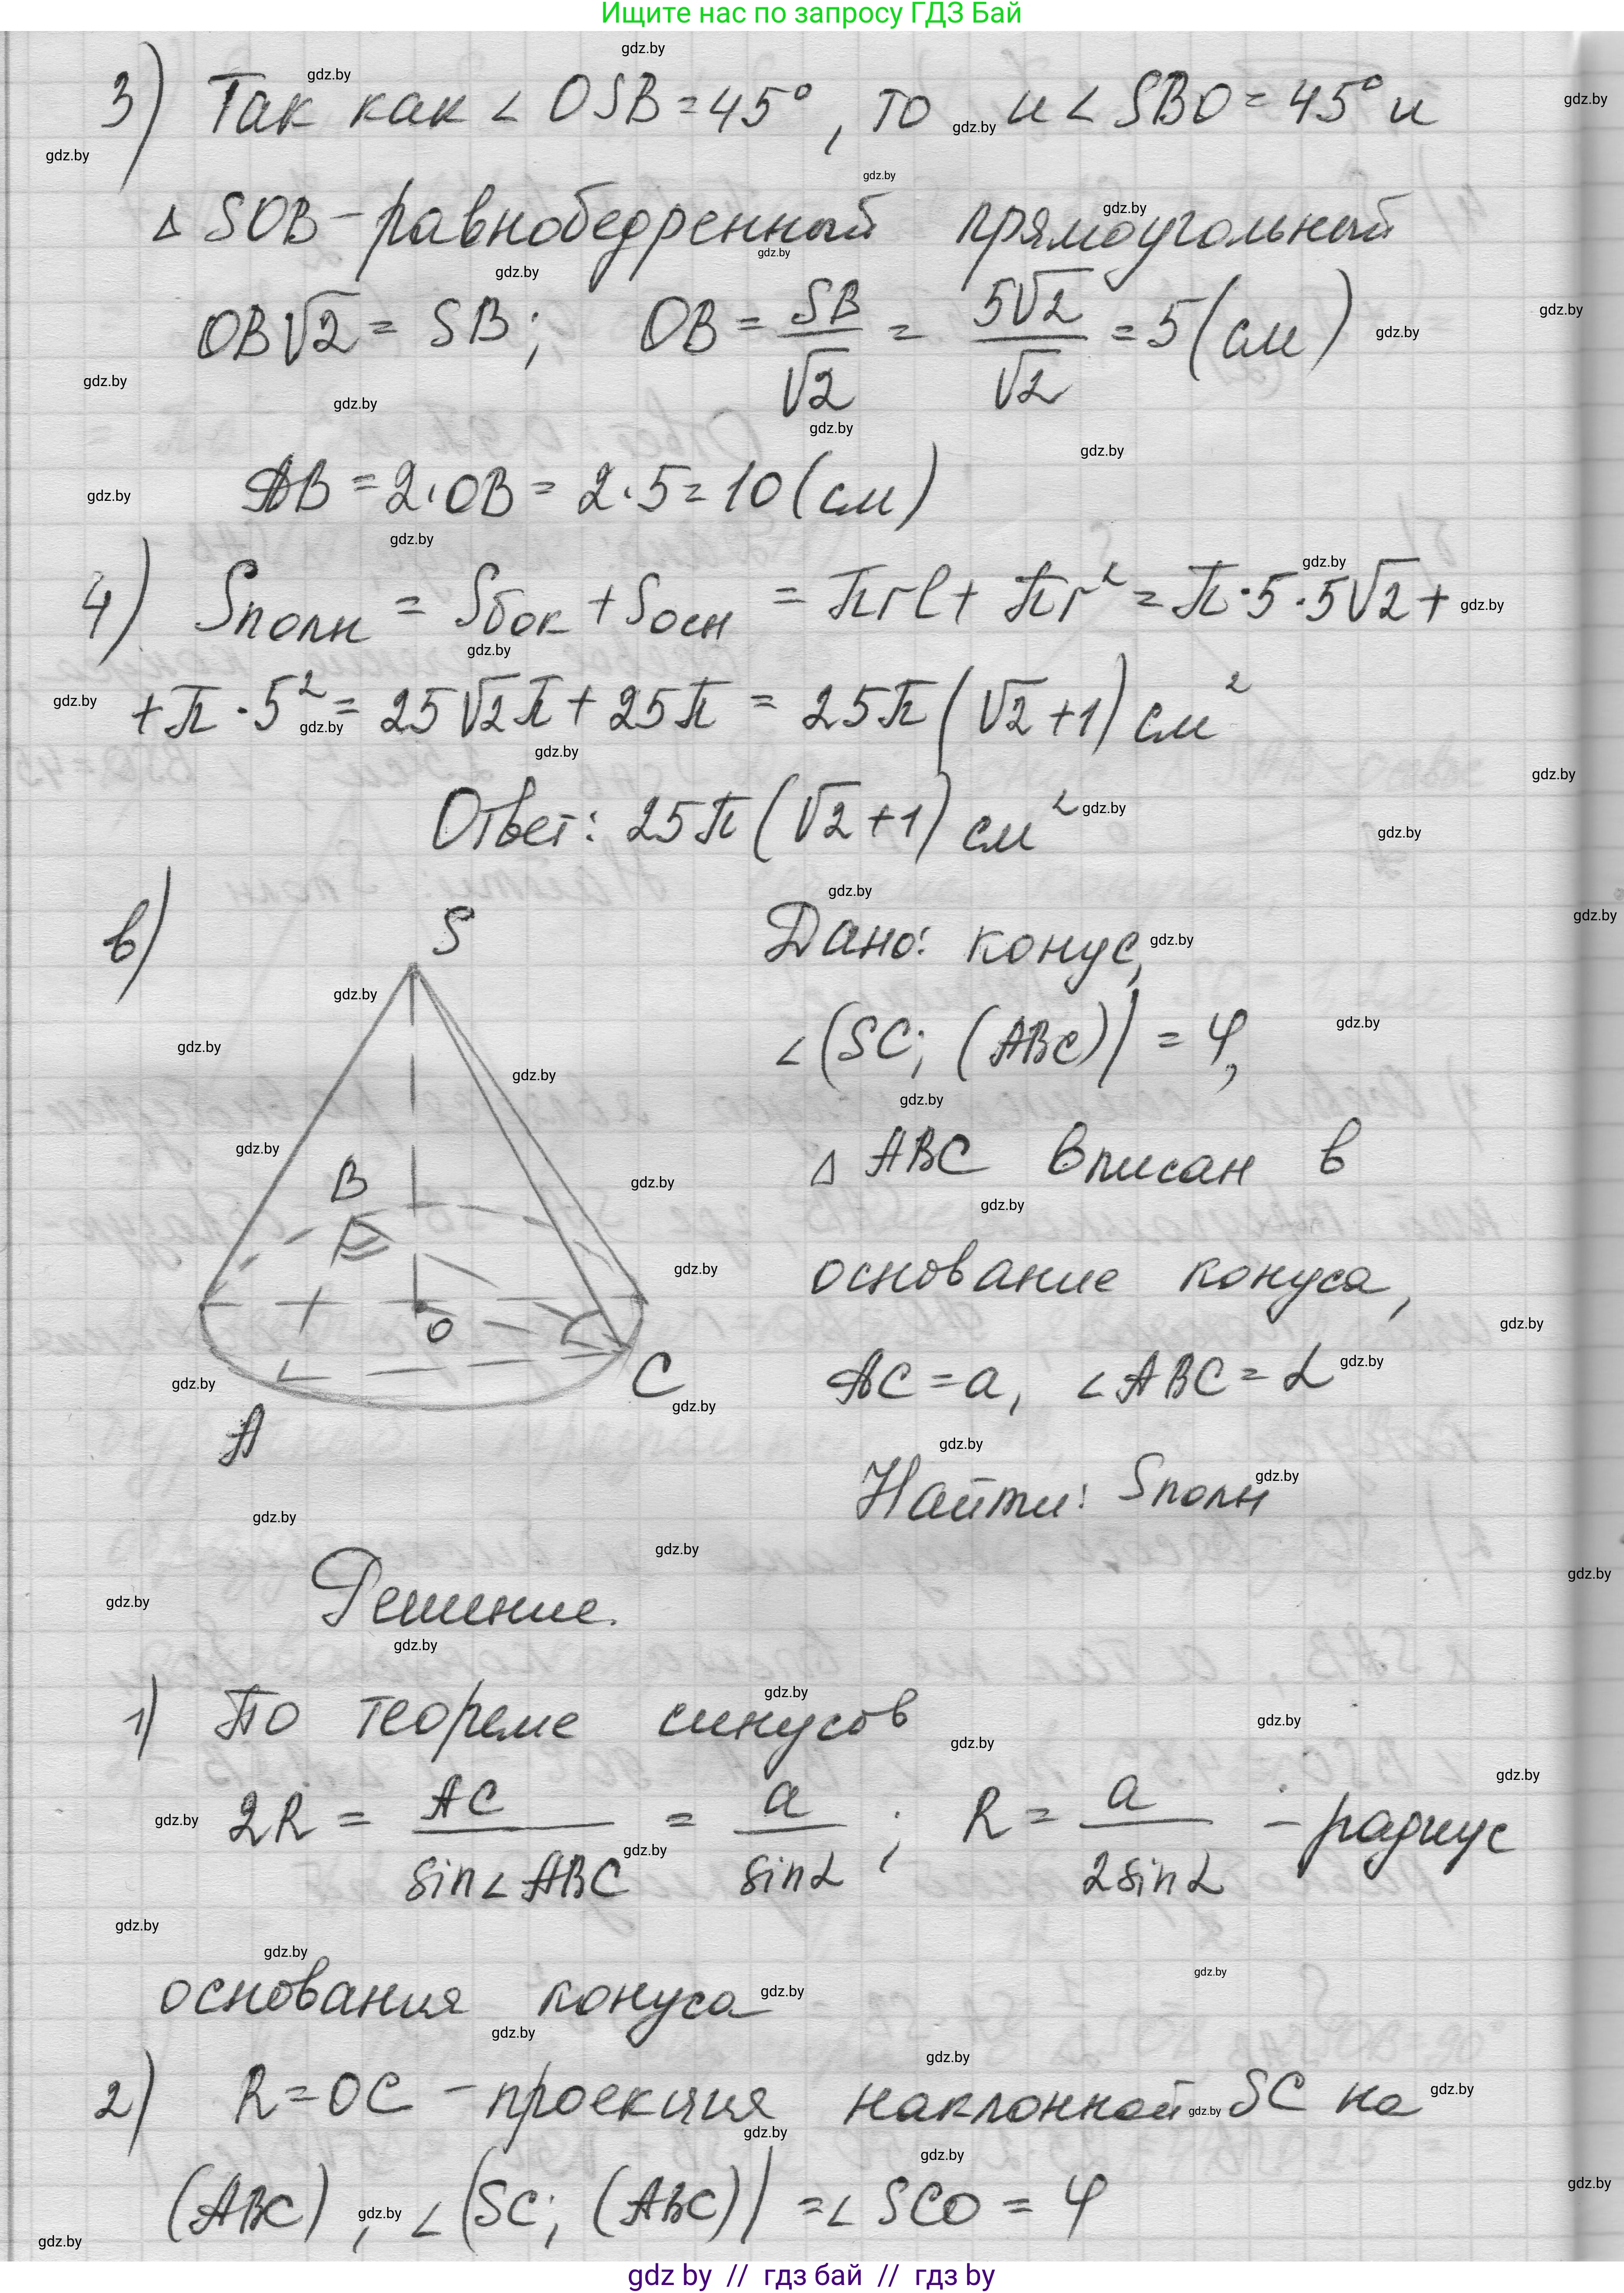 Ищите нас по запросу ГДЗ Бай
3) Так как ∠ OSB = 45°, то и ∠ SBO = 45° и
△ SOB - равнобедренный прямоугольный
OB√2 = SB; OB = SB/√2 = 5√2/√2 = 5 (см)
AB = 2·OB = 2·5 = 10 (см)
4) Sполн = Sбок + Sосн = πrl + πr² = π·5·5√2 +
+ π·5² = 25√2π + 25π = 25π(√2+1) см²
Ответ: 25π(√2+1) см²
в)
S
B
O
C
A
Дано: конус,
∠(SC; (ABC)) = φ,
△ ABC вписан в
основание конуса,
AC = a, ∠ABC = α
Найти: Sполн
Решение.
1) По теореме синусов
2R = AC/sin∠ABC = a/sinα; R = a/2sinα - радиус
основания конуса
2) R = OC - проекция наклонной SC на
(ABC), ∠(SC; (ABC)) = ∠ SCO = φ
gdz by // гдз бай // гдз by